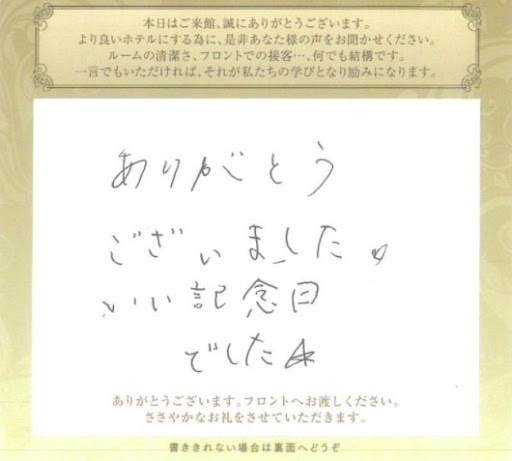 本日はご来館、誠にありがとうございます。
より良いホテルにする為に、是非あなた様の声をお聞かせください。
ルームの清潔さ、フロントでの接客…、何でも結構です。
一言でもいただければ、それが私たちの学びとなり励みになります。
ありがとう
ございました♡
いい記念日
でした☆
ありがとうございます。フロントへお渡しください。
ささやかなお礼をさせていただきます。
書ききれない場合は裏面へどうぞ